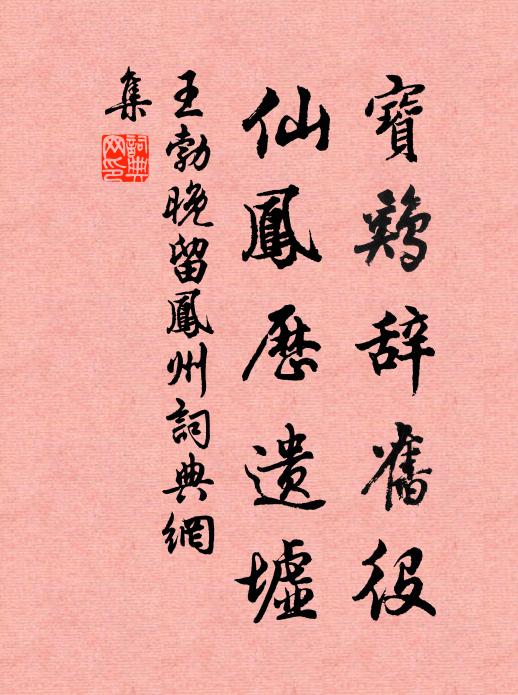 寶鷄辞舊役
仙鳳歷遺墟
王勃晚留鳳州詞典網
集
詞典网印